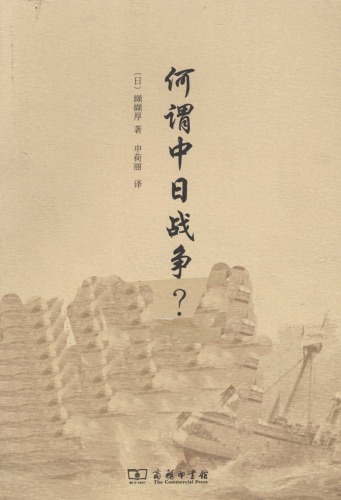 何谓中日战争？
〔日〕纐纈厚 著 申荷丽 译
商务印书馆
The Commercial Press